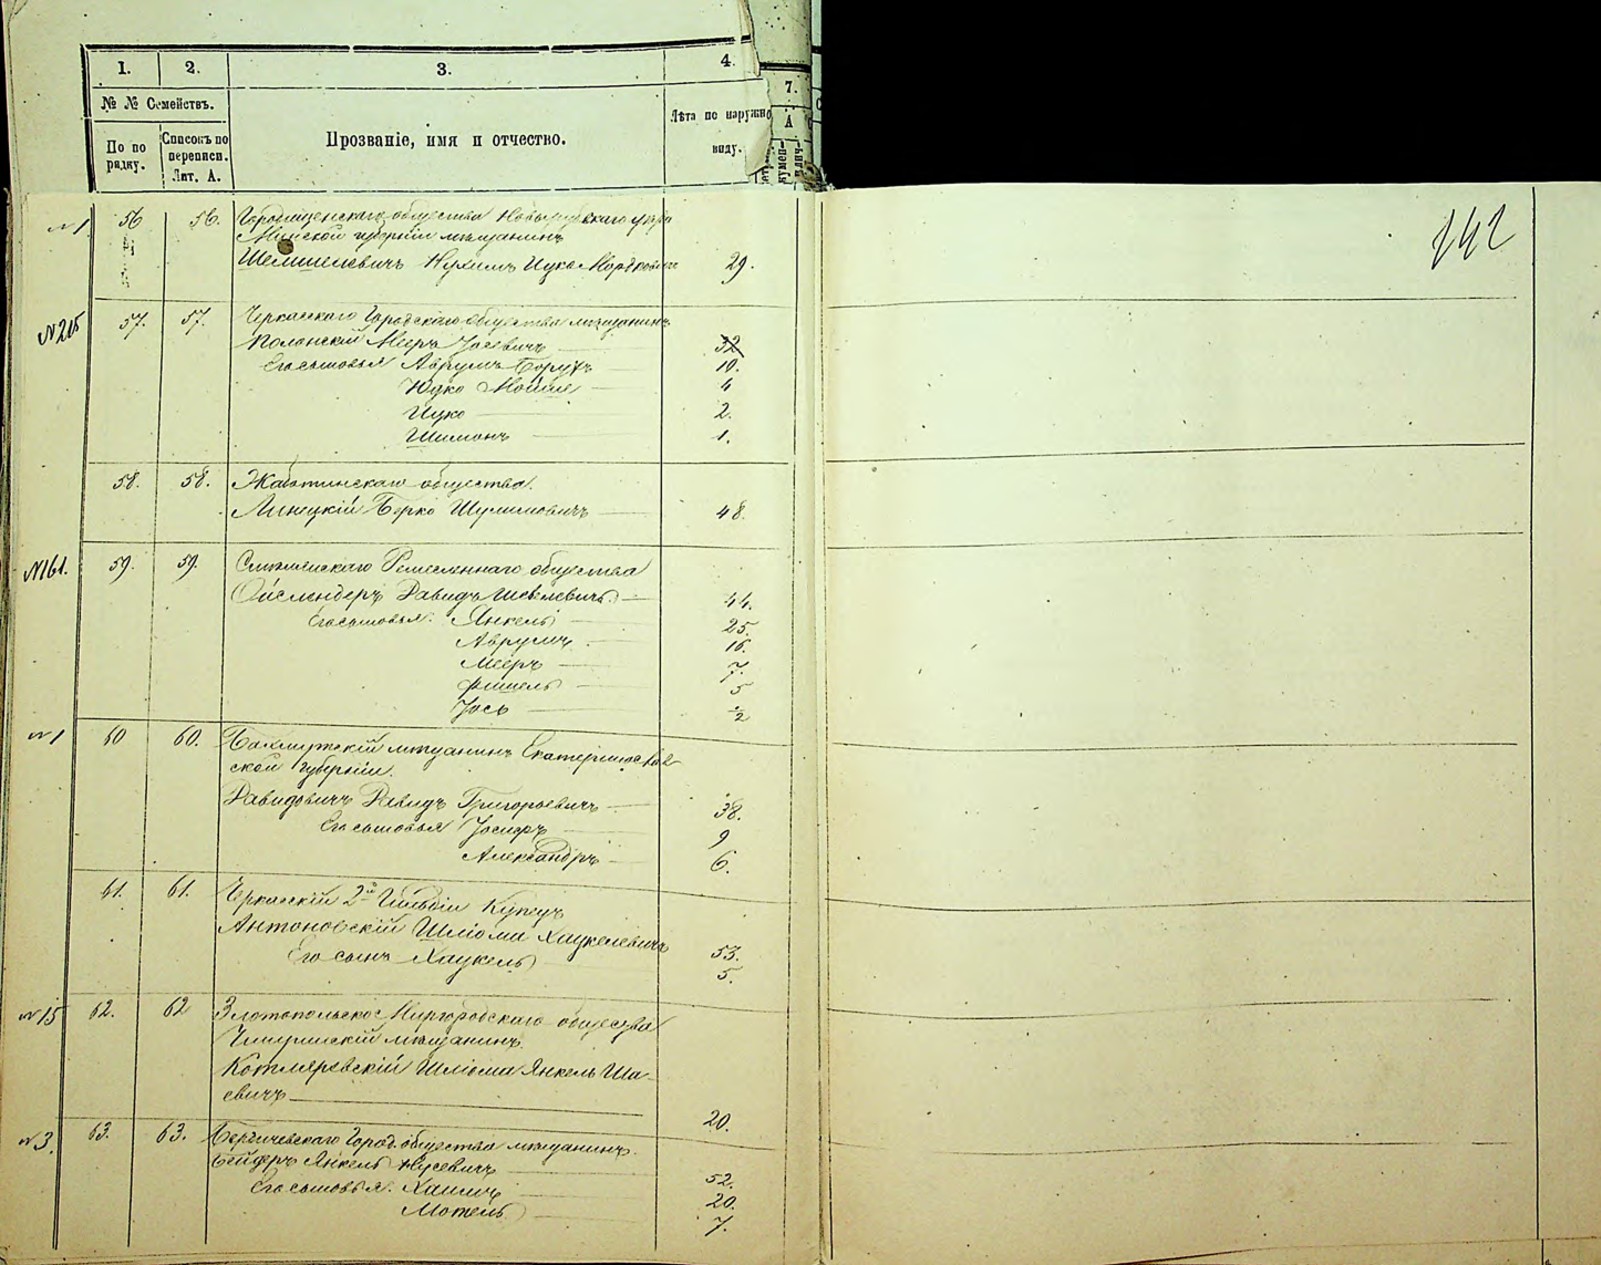 1. 2. 3. 4.
7.
№ № Семействъ.
По по рядку.
Списокъ по переписи. Лит. А.
Прозваніе, имя и отчество.
Лѣта по наружно
виду.
А
142
№1 56 56. Городищенскаго общества уѣзда
Минской губерніи мѣщанинъ
Нухимъ Ицко Мордковичъ 29.
№215 57. 57. Черкасскаго Городскаго общества мѣщанинъ
Полонскій Мееръ Іосевичъ 32
Его сыновья Аврумъ Борухъ 10.
Юдко Мойше 4
Ицко 2.
Шимонъ 1.
58. 58. Жаботинскаго общества.
Линецкій Берко Шулимовичъ 48.
№161. 59. 59. Смѣлянскаго Ремесленнаго общества
Ойслендеръ Давидъ Шевелевичъ 44.
Его сыновья. Янкель 25.
Аврумъ 16.
Мееръ 7.
Фишель 5
Іось ½
№1 60 60. Бахмутскій мѣщанинъ Екатеринослав-
ской Губерніи.
Давидовичъ Давидъ Григорьевичъ 38.
Его сыновья Іосифъ 9
Александръ 6.
61. 61. Черкасскій 2й Гильдіи Купецъ
Антоновскій Шліома Хацкелевичъ 53.
Его сынъ Хацкель 5.
№15 62. 62 Златопольско Миргородскаго общества
Чигиринскій мѣщанинъ
Котляревскій Шліома Янкель Ша-
евичъ 20.
№3. 63. 63. Бердичевскаго Город. общества мѣщанинъ.
Бейдеръ Янкель Нусевичъ 52.
Его сыновья. Хаимъ 20.
Мотель 7.